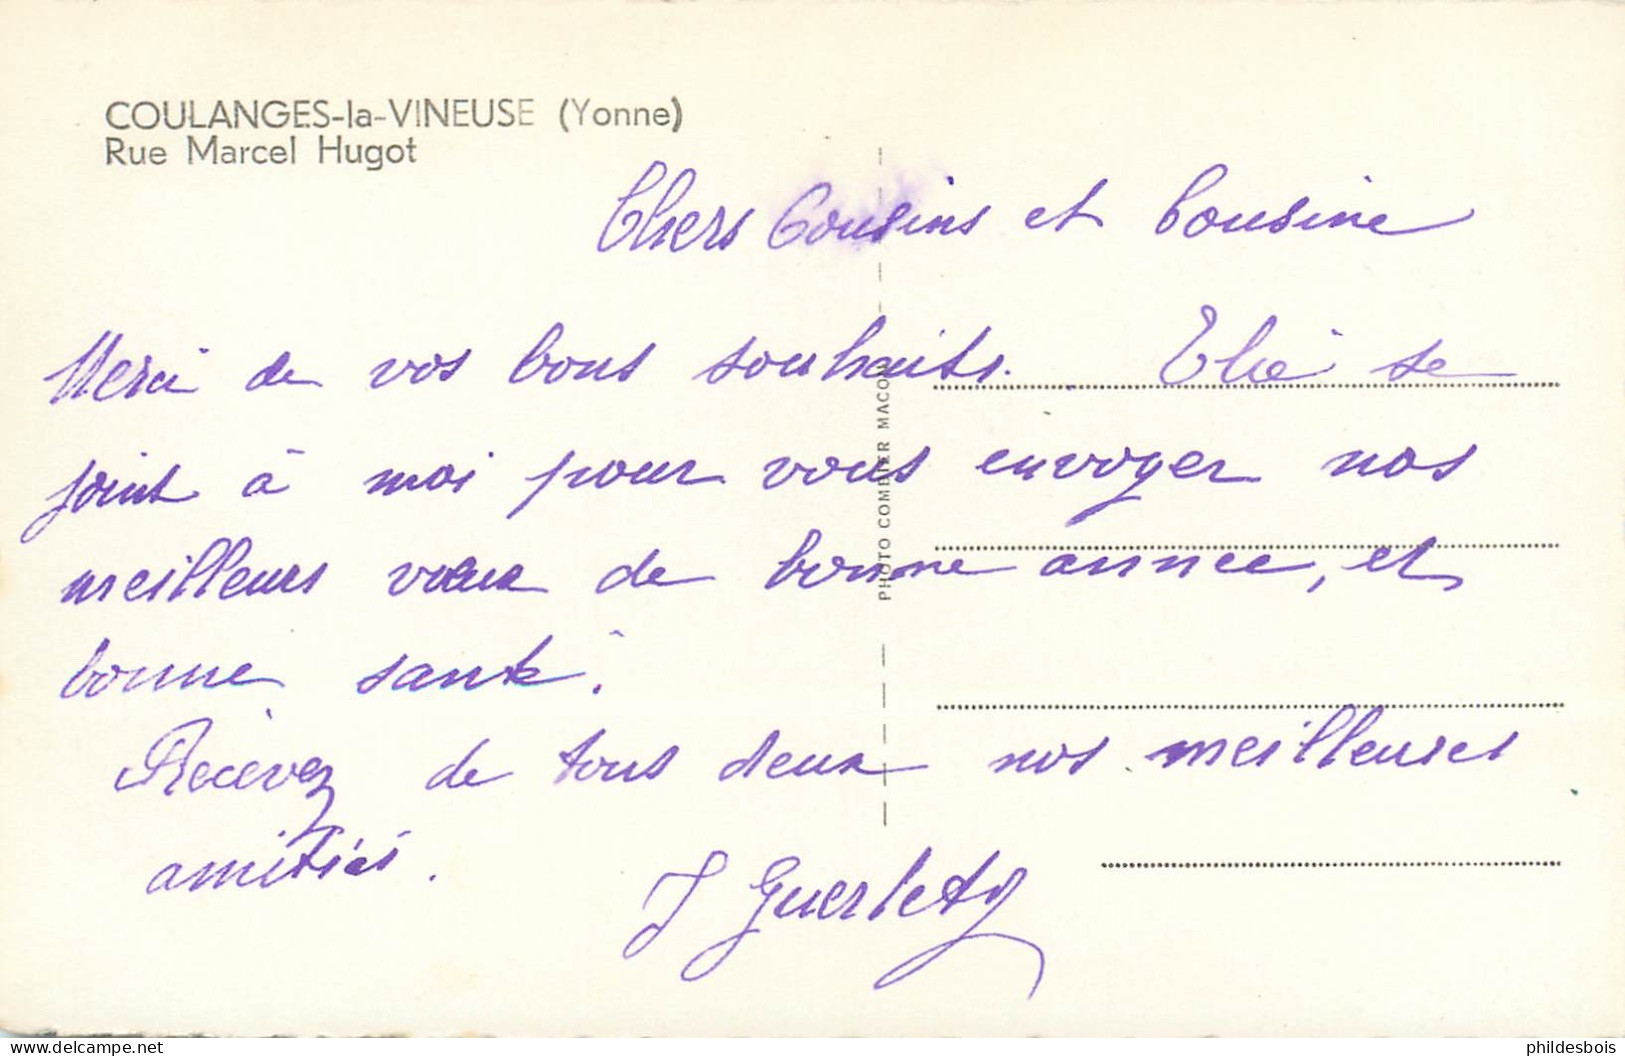 COULANGES-la-VINEUSE (Yonne)
Rue Marcel Hugot
Chers Cousins et Cousine
Merci de vos bons souhaits. Elie se
joint à moi pour vous envoyer nos
meilleurs vœux de bonne année, et
bonne santé.
Recevez de tous deux nos meilleures
amitiés.
J Guerlet
PHOTO COMBIER MACON
www.delcampe.net
phildesbois